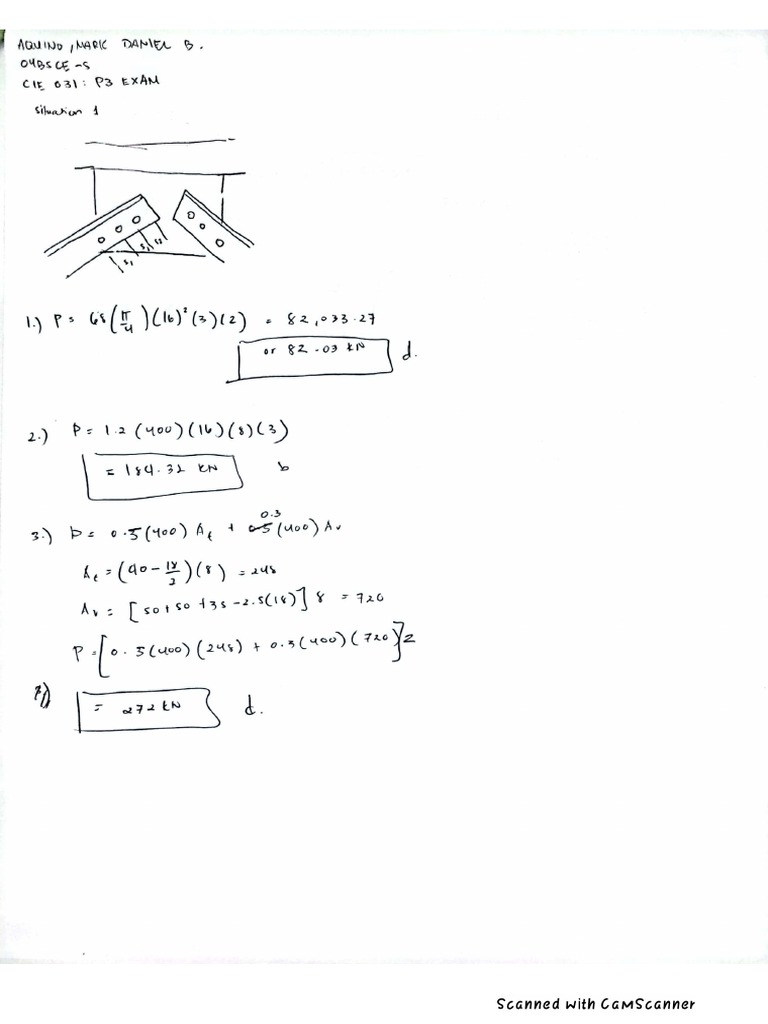 AQUINO, MARK DANIEL B.
04BSCE-S
CIE 031: P3 EXAM
Situation 1
S1 S1 S2
1.) P = 68 (π/4) (16)² (3) (2) = 82,033.27
or 82.03 KN d.
2.) P = 1.2 (400) (16) (8) (3)
= 184.32 KN b
3.) P = 0.5 (400) At + 0.3 (400) Av
At = (40 - 18/2) (8) = 248
Av = [50 + 50 + 35 - 2.5(18)] 8 = 720
P = [0.5 (400) (248) + 0.3 (400) (720)] 2
= 272 KN d.
Scanned with CamScanner